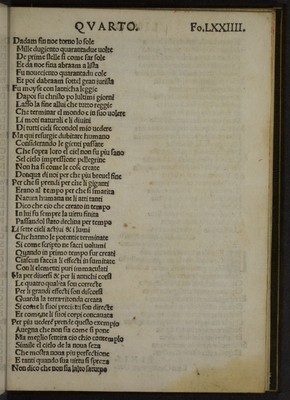 QVARTO. Fo.LXXIIII.
Dadam fin noe torno lo sole
Mille dugiento quarantadue uolte
De prime stelle si come far sole
Et da noe fina abraam a lista
Fu nouecento quarantadu cole
Et poi dabraam sottel gran iurista
Fu moyse con lanticha leggie
Dapoi fu christo po lultimi giorni
Lasso la fine allui che tutto reggie
Che terminar el mondo e in suo uolere
Li moti naturali e li diuini
Di tutti cieli secondol mio uedere
Ma qui resurgie dubitare humano
Considerando le gienti passate
Che sopra loro el ciel non fu piu sano
Sel cielo impressione pellegrine
Non ha si come le cose create
Donqua di noi per che piu breuel fine
Per che si prendi per che li giganti
Erano al tempo per che si smarita
Natura humana ne li anti tanti
Dico che cio che creato in tempo
In lui fu sempre la uirtu finita
Passandol stato declina per tempo
Li sette cieli actiui & i lumi
Che hanno le potentie terminate
Si come scripto ne sacri uolumi
Quando in primo tempo fur creati
Ciascun faccia li effecti in sumitate
Con li elementi puri immaculati
Ma per diuersi & per li antichi corsi
Le quatro qualita son correcte
Per li grandi effecti son discorsi
Guarda la terra ritonda creara
Si come li suoi precinti son directe
Et comune li suoi corpi concauara
Per piu uedere prende questo exemplo
Auegna che non sia come si pone
Ma meglio sentira cio chio contemplo
Simile el cielo de la noua seta
Che mostra noua piu perfectione
E tanti quando sua uirtu si spreza
Non dico che non sia lalto fattore